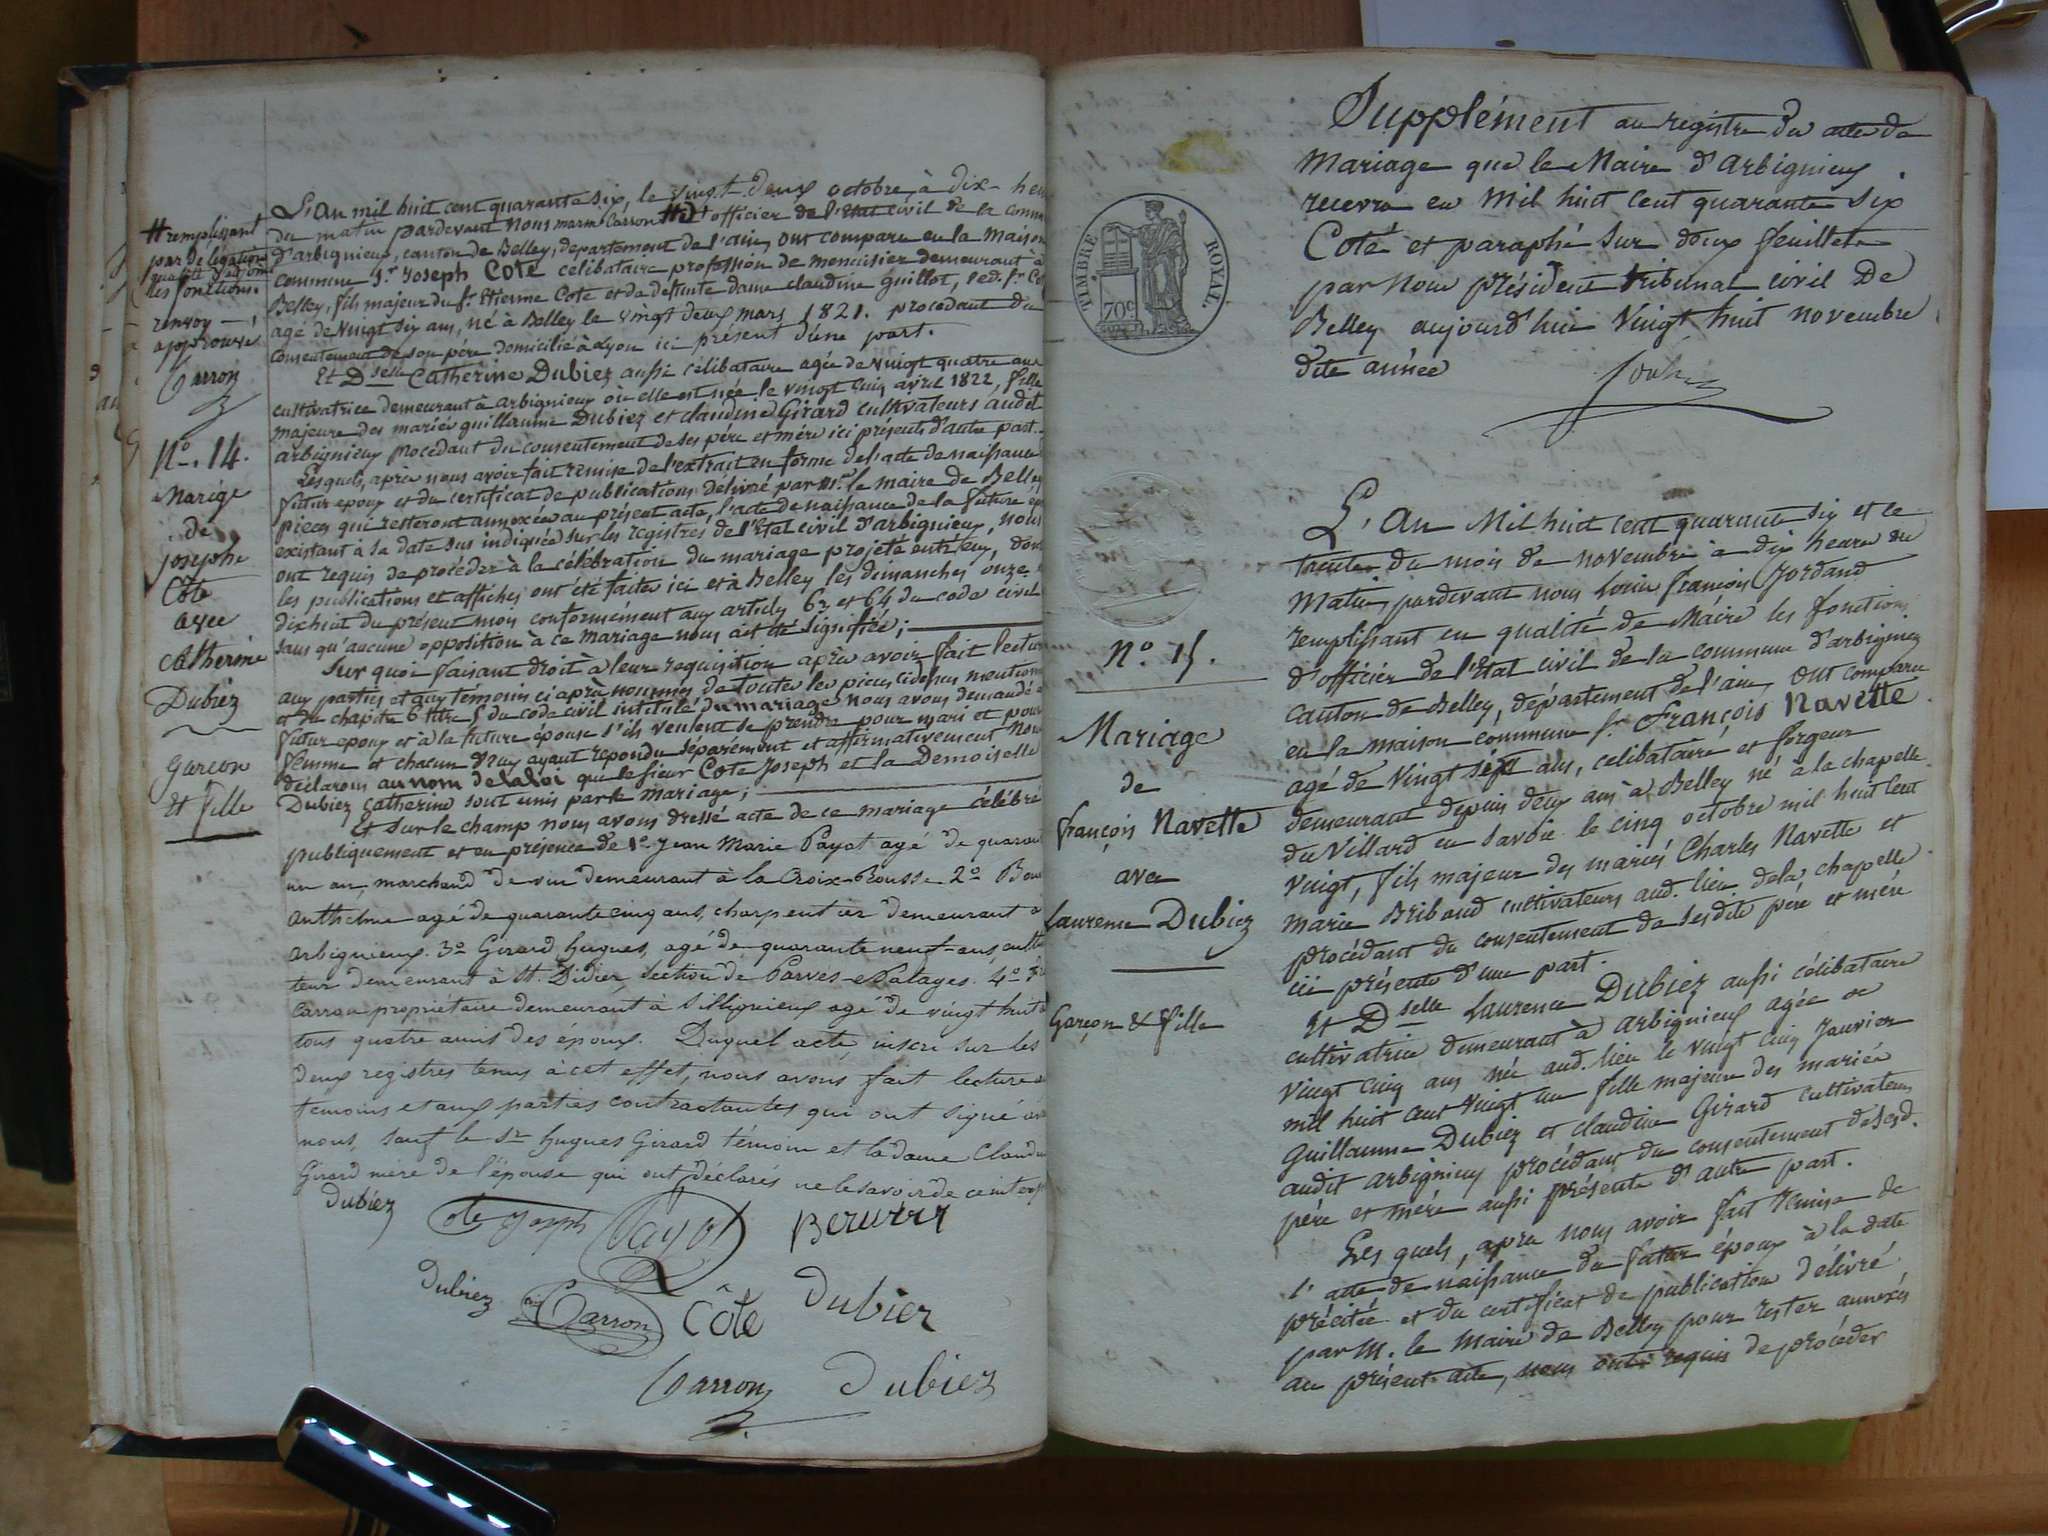 # remplissant
par délégation
les fonctions.
renvoy
approuvé
Carron
N° 14.
Mariage
de
Joseph
Côte
avec
Catherine
Dubiez
Garçon
Et fille
L'An mil huit cent quarante six, le vingt-deux octobre à dix- heu
du matin pardevant nous Carron # officier de l'Etat civil de la comm
d'arbignieu, canton de Belley, département de l'ain, ont comparu en la maison
commune Sr Joseph Cote célibataire profession de menuisier demeurant à
Belley, fils majeur du Sr Etienne Cote et de defunte dame claudine guillot,
agé de vingt six ans, né à Belley le vingt deux mars 1821. procédant du
consentement de son père domicilié à Lyon ici présent d'une part.
Et Dselle Catherine Dubiez aussi célibataire agée de vingt quatre ans
cultivatrice demeurant à arbignieu où elle est née le vingt cinq avril 1822, fille
majeure des mariés guillaume Dubiez et claudine Girard cultivateurs audit
arbignieu procédant du consentement de ses père et mère ici présents d'autre part.
Lesquels, après nous avoir fait remise de l'extrait en forme de l'acte de naissance
futur epoux et du certificat de publications délivré par Mr. le maire de Belley
pieces qui resteront annexées au présent acte, l'acte de naissance de la future ép
existant à sa date sus indiquée sur les registres de l'Etat civil d'arbignieu, nous
ont requis de procéder à la célébration du mariage projeté entr'eux, dont
les publications et affiches ont été faites ici et à Belley les dimanches onze
dixhuit du présent mois conformément aux articles 63 et 64 du code civil
sans qu'aucune opposition à ce mariage nous ait été signifiée;
Sur quoi faisant droit à leur requisition après avoir fait lectur
aux parties et aux temoins ci après nommés de toutes les pieces cidessus mention
et du chapitre 6 titre 5 du code civil intitulé du mariage nous avons demandé
futur epoux et à la future épouse s'ils veulent se prendre pour mari et pour
femme et chacun d'eux ayant repondu séparément et affirmativement Nous
déclarons au nom de la loi que le sieur Cote Joseph et la Demoiselle
Dubiez Catherine sont unis par le mariage;
Et sur le champ nous avons dressé acte de ce mariage célébré
publiquement et en présence de 1° Jean Marie Payot agé de quaran
un an, marchand de vin demeurant à la Croix-Rousse 2°
anthelme agé de quarante cinq ans, charpentier demeurant à
arbignieux. 3° Girard hugues, agé de quarante neuf-ans, culti
teur demeurant à St. Didier, section de Parves et Nalages. 4°
Carron propriétaire demeurant à Sillignieux agé de vingt huit
tous quatre amis des époux. Duquel acte, inscri sur les
deux registres tenus à cet effet, nous avons fait lecture
temoins et aux parties contractantes qui ont signé
nous, sauf le Sr hugues Girard témoin et la dame Claud
Girard mère de l'épouse qui ont déclarés ne le savoir de ce
Dubiez Cote Joseph Payot
Dubiez Carron Côte Dubiez
Carron Dubiez
TIMBRE ROYAL.
70c
Supplément au registre des actes de
Mariage que le Maire d'arbignieu
recevra en Mil huit cent quarante six
Coté et paraphé sur deux feuillets
par nous président tribunal civil de
Belley aujourd'hui vingt huit novembre
dite année
N° 15.
Mariage
de
françois Navette
avec
Laurence Dubiez
Garçon & fille
L'An Mil huit cent quarante six et le
trente du mois de novembre à dix heures du
Matin, pardevant nous Louis françois Jordand
remplissant en qualité de Maire les fonctions
d'officier de l'Etat civil de la commune d'arbignieu
canton de Belley, département de l'ain, ont comparu
en la maison commune Sr François Navette
agé de vingt sept ans, célibataire et forgeur
demeurant depuis deux ans à Belley né à la chapelle
du Villard en Savoie le cinq octobre mil huit cent
vingt, fils majeur des mariés Charles Navette et
marie Briboud cultivateurs aud. lieu de la chapelle
procédant du consentement de sesdits père et mère
ici présents d'une part.
Et Dselle Laurence Dubiez aussi célibataire
cultivatrice demeurant à Arbignieux agée de
vingt cinq ans née aud. lieu le vingt cinq Janvier
mil huit cent vingt un fille majeure des mariés
Guillaume Dubiez et claudine Girard cultivateurs
audit arbignieu procédant du consentement de sesd.
père et mère aussi présents d'autre part.
Les quels, après nous avoir fait remise de
l'acte de naissance du futur époux à la date
précitée et du certificat de publication délivré
par M. le Maire de Belley pour rester annexés
au présent acte, nous ont requis de procéder